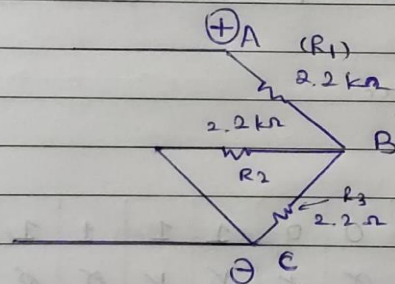 ⊕ A (R1)
2.2 kΩ
2.2 kΩ
B
R2
R3
2.2 Ω
⊖ C